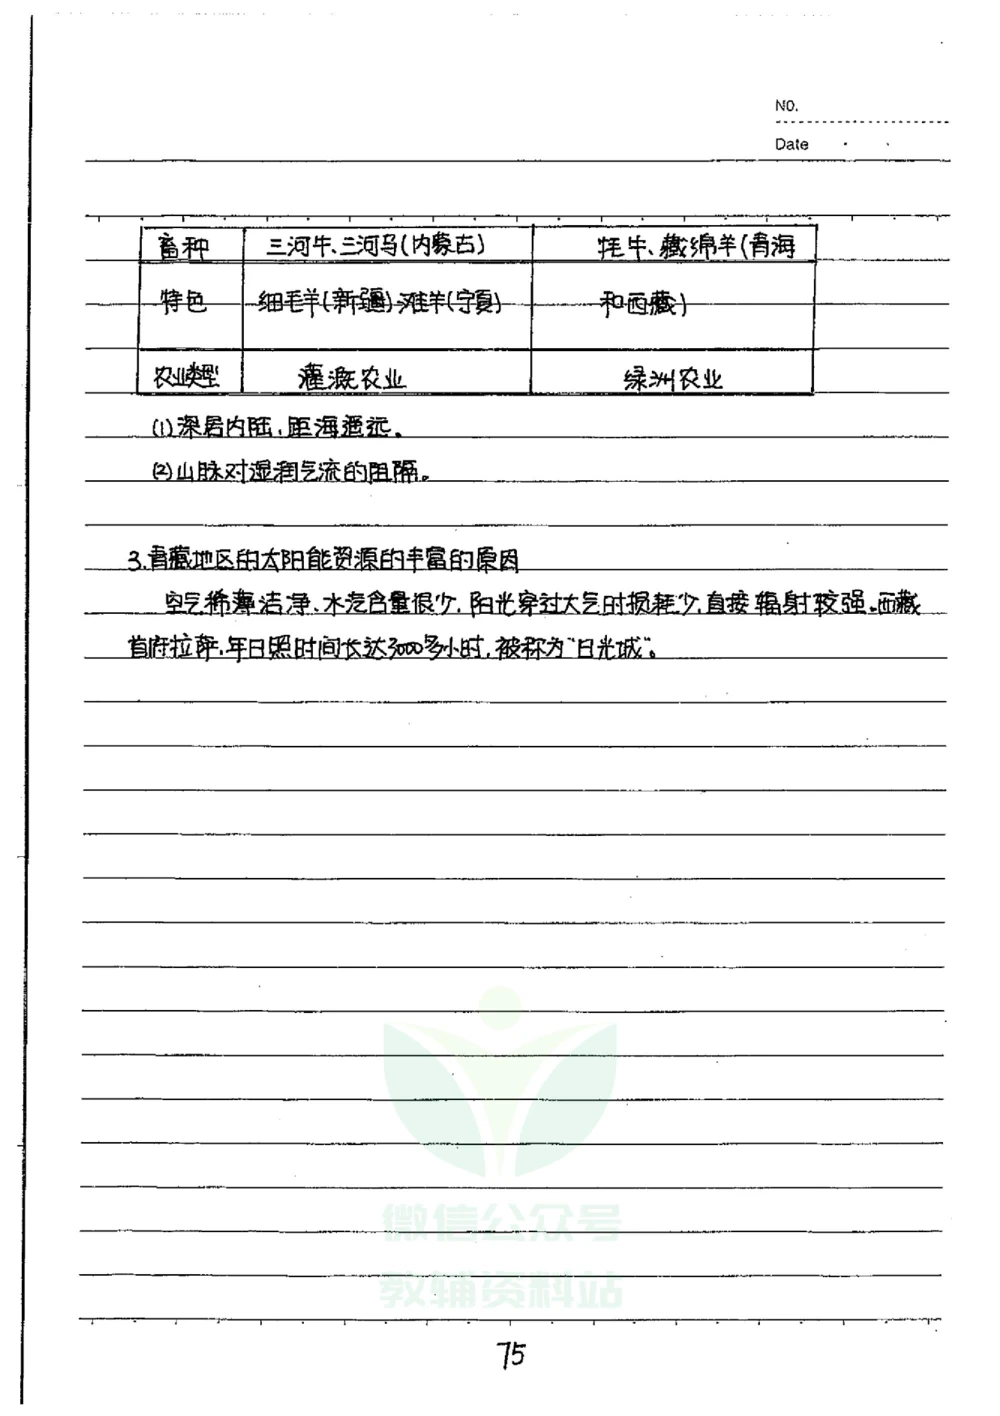 NO.
Date
畜种 三河牛、三河马(内蒙古) 牦牛、藏绵羊(青海
特色 细毛羊(新疆)、滩羊(宁夏) 和西藏)
农业类型 灌溉农业 绿洲农业
(1)深居内陆,距海遥远。
(2)山脉对湿润气流的阻隔。
3.青藏地区的太阳能资源的丰富的原因
空气稀薄洁净、水汽含量很少,阳光穿过大气时损耗少,直接辐射较强。西藏
首府拉萨,年日照时间长达3000多小时,被称为“日光城”。
微信公众号
教辅资料站
75